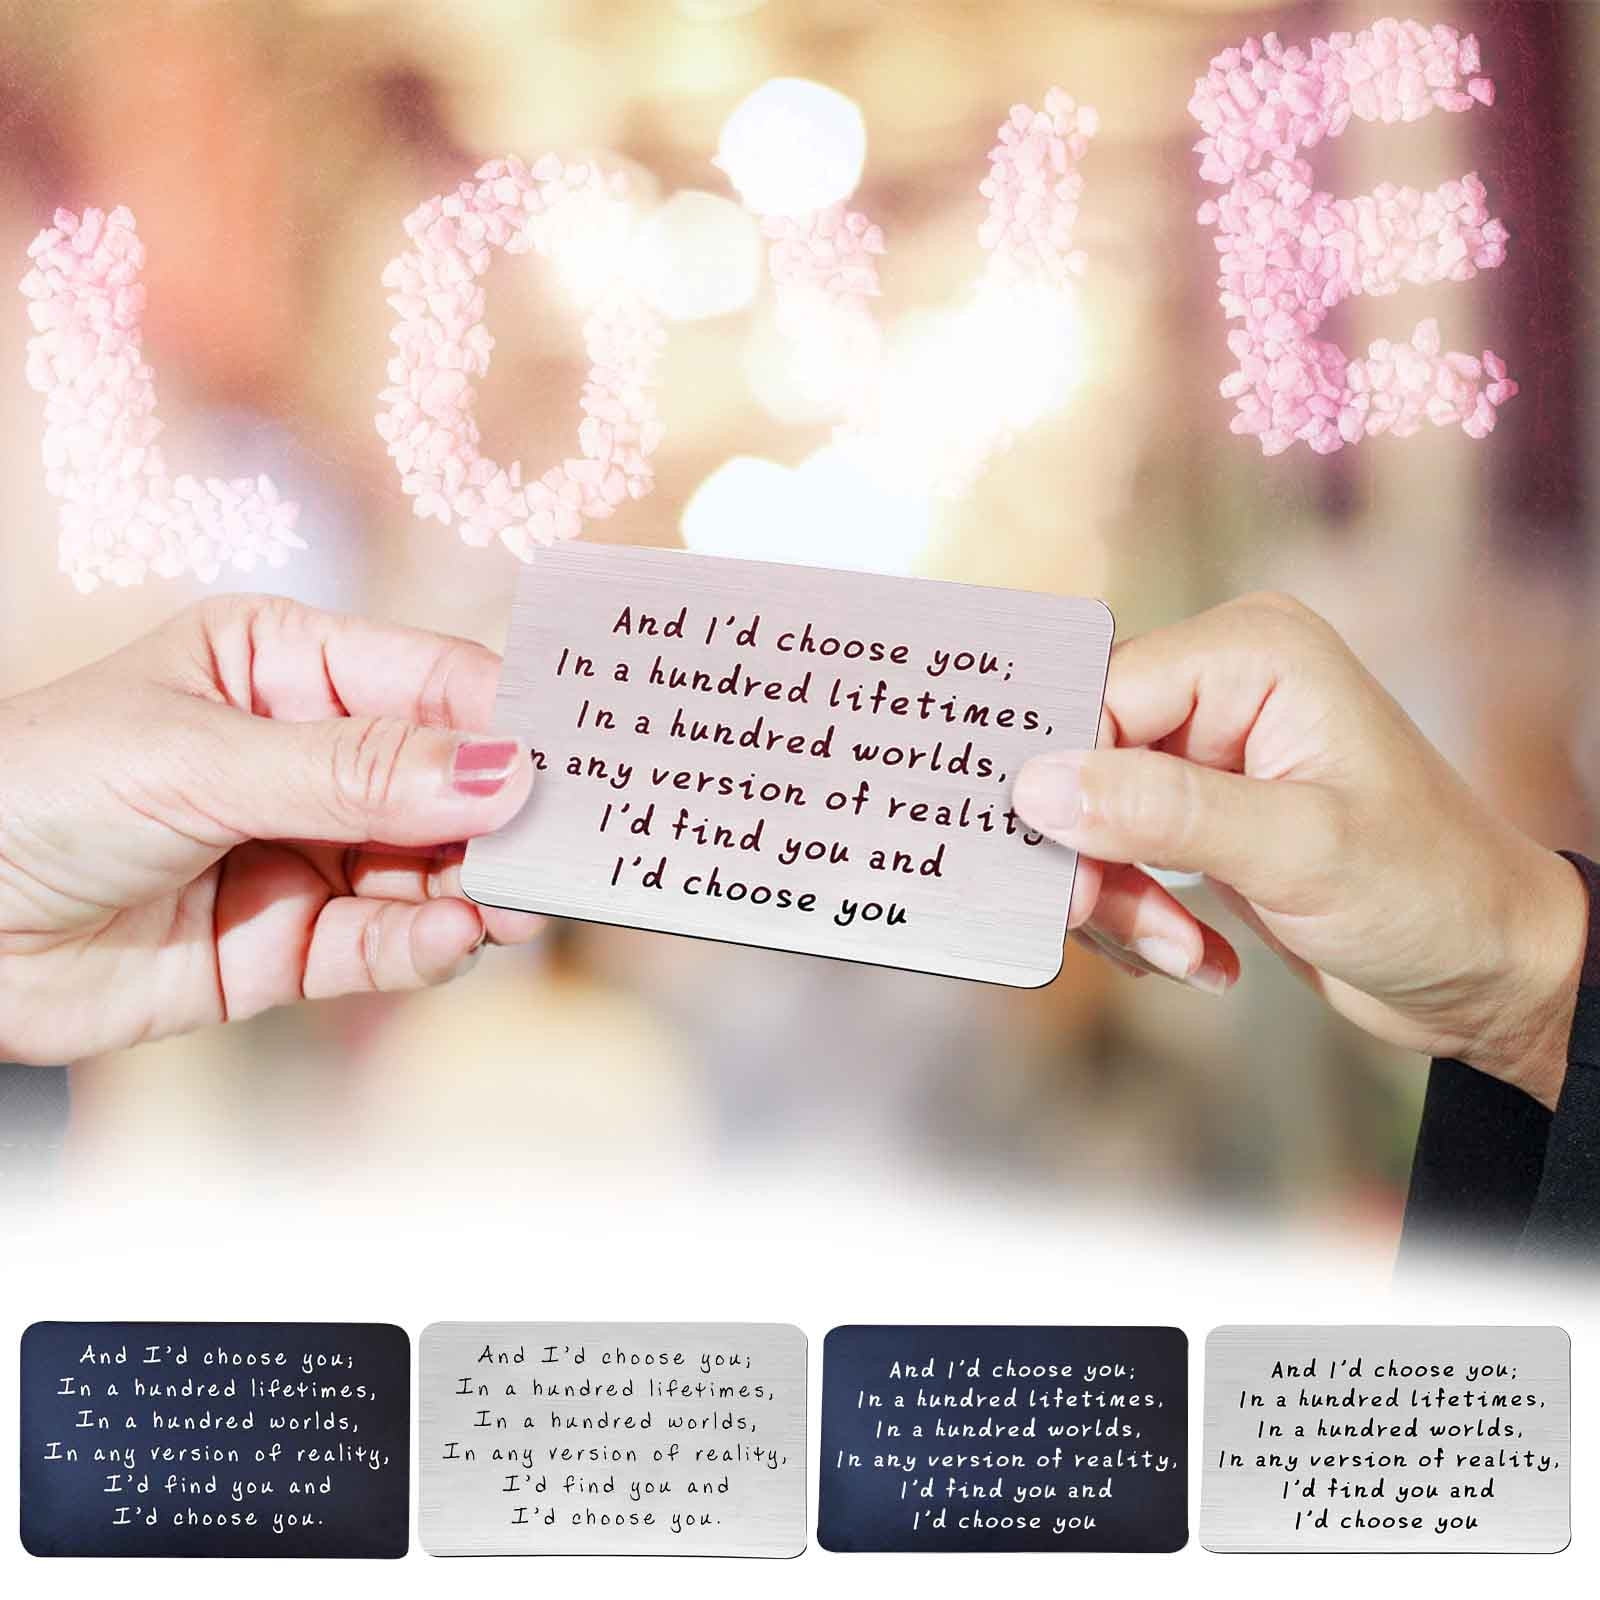 LOVE
And I'd choose you;
In a hundred lifetimes,
In a hundred worlds,
n any version of reality
I'd find you and
I'd choose you
And I'd choose you;
In a hundred lifetimes,
In a hundred worlds,
In any version of reality,
I'd find you and
I'd choose you.
And I'd choose you;
In a hundred lifetimes,
In a hundred worlds,
In any version of reality,
I'd find you and
I'd choose you.
And I'd choose you;
In a hundred lifetimes,
In a hundred worlds,
In any version of reality,
I'd find you and
I'd choose you
And I'd choose you;
In a hundred lifetimes,
In a hundred worlds,
In any version of reality,
I'd find you and
I'd choose you